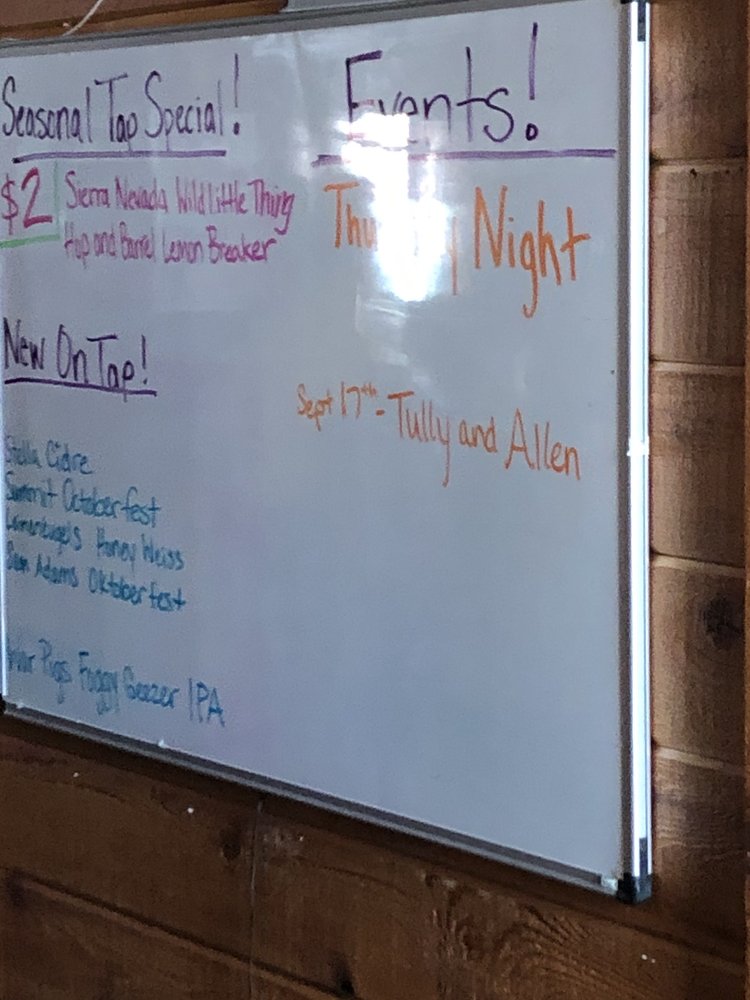 Seasonal Tap Special!
$2 Sierra Nevada Wild Little Thing
Hop and Barrel Lemon Breaker
New On Tap!
Stella Cidre
Summit Octoberfest
Leinenkugels Honey Weiss
Sam Adams Oktoberfest
War Pigs Foggy Geezer IPA
Events!
Thursday Night
Sept 17th - Tully and Allen